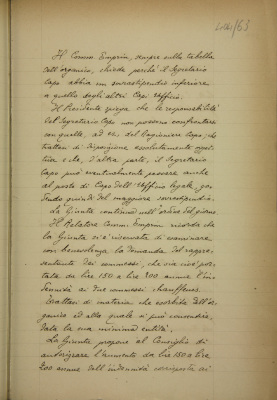 63
Il Comm. Emprin, sempre sulla tabella
dell'organico, chiede perchè il Segretario
Capo abbia un sovrastipendio inferiore
a quello degli altri Capi Ufficio.
Il Presidente spiega che le responsabilità
del Segretario Capo non possono confrontarsi
con quelle, ad es. del Ragioniere Capo; che
trattasi di disposizione assolutamente ogget-
tiva e che, d'altra parte, il Segretario
Capo può eventualmente passare anche
al posto di Capo dell'Ufficio legale, go-
dendo quindi del maggiore sovrastipendio.
La Giunta continua nell'ordine del giorno.
Il Relatore Comm. Emprin ricorda che
la Giunta si è riservata di esaminare
con benevolenza la domanda del rappre-
sentante dei commessi, che sia cioè por-
tata da lire 150 a lire 200 annue l'in-
dennità ai due commessi chauffeurs.
Trattasi di materia che esorbita dall'or-
ganico ed alla quale si può consentire,
data la sua minima entità.
La Giunta propone al Consiglio di
autorizzare l'aumento da lire 150 a lire
200 annue dell'indennità corrisposta ai